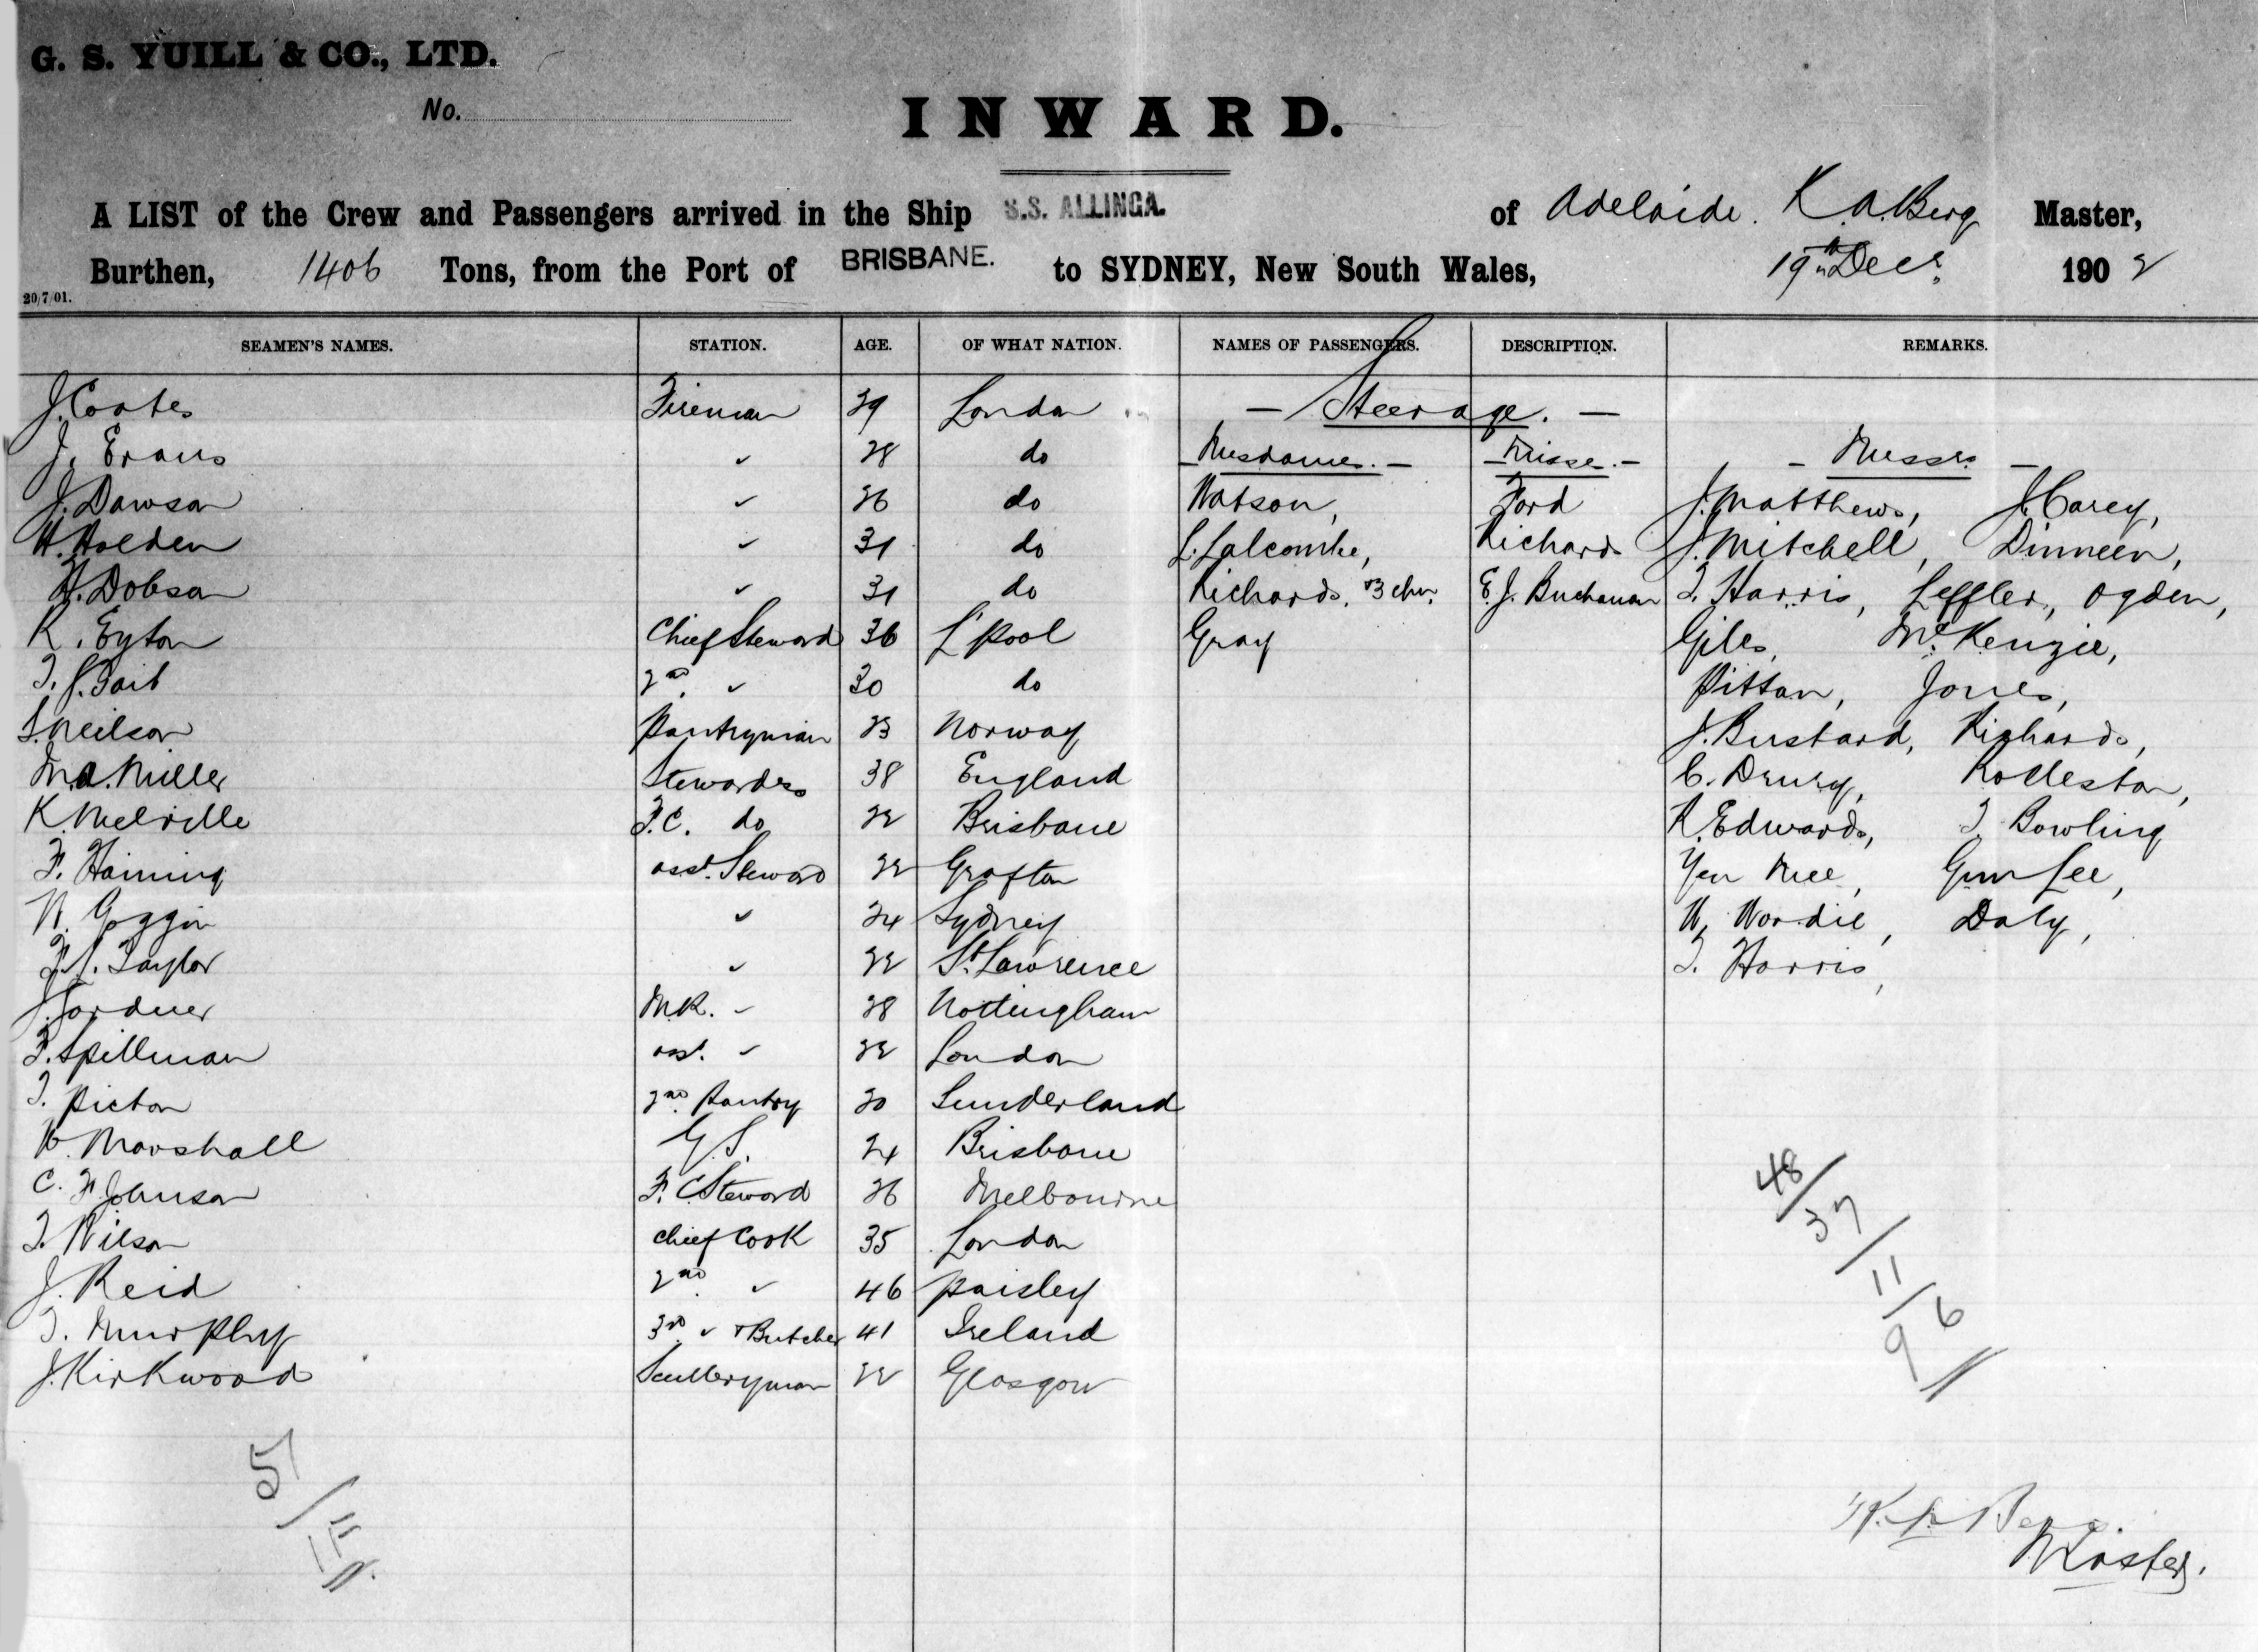 G. S. YUILL & CO., LTD.
No.
INWARD.
A LIST of the Crew and Passengers arrived in the Ship S.S. ALLINGA. of Adelaide. K. A. Berg Master,
Burthen, 1406 Tons, from the Port of BRISBANE. to SYDNEY, New South Wales, 19th Decr. 1902
20/7/01.
SEAMEN'S NAMES. STATION. AGE. OF WHAT NATION. NAMES OF PASSENGERS. DESCRIPTION. REMARKS.
J. Coates Fireman 39 London — Steerage. —
J. Evans ✓ 28 do — Mesdames. — — Misses. — — Messrs —
J. Dawson ✓ 26 do Watson, Ford J. Matthews, J. Carey,
H. Holden ✓ 31 do L. Lalcombe, Richards J. Mitchell, Dinneen,
H. Dobson ✓ 31 do Richards, & 3 chn. E. J. Buchanan T. Harris, Leffler, Ogden,
R. Eyton Chief Steward 36 L'pool Gray Giles, McKenzie,
T. J. Tait 2nd. ✓ 30 do Pittan, Jones,
S. Neilson Pantryman 23 Norway J. Bustard, Richards,
M. A. Miller Stewardess 38 England C. Drury, Rolleston,
K. Melville F.C. do 22 Brisbane R. Edwards, T. Bowling
F. Haining asst. Steward 22 Grafton Yen Mee, Gum Lee,
W. Goggin ✓ 24 Sydney W. Wordie, Daly,
F. J. Taylor ✓ 22 St. Lawrence T. Harris,
J. Jardner M.R. ✓ 28 Nottingham
F. Spillman asst. ✓ 22 London
T. Picton 2nd. Pantry 20 Sunderland
W. Marshall G.S. 24 Brisbane
C. F. Johnson F. C. Steward 26 Melbourne
T. Wilson Chief Cook 35 London
J. Reid 2nd. ✓ 46 Paisley
T. Murphy 3rd. ✓ & Butcher 41 Ireland
J. Kirkwood Sculleryman 22 Glasgow
48/37/11/6
9
51/11
K. A. Berg.
Master.